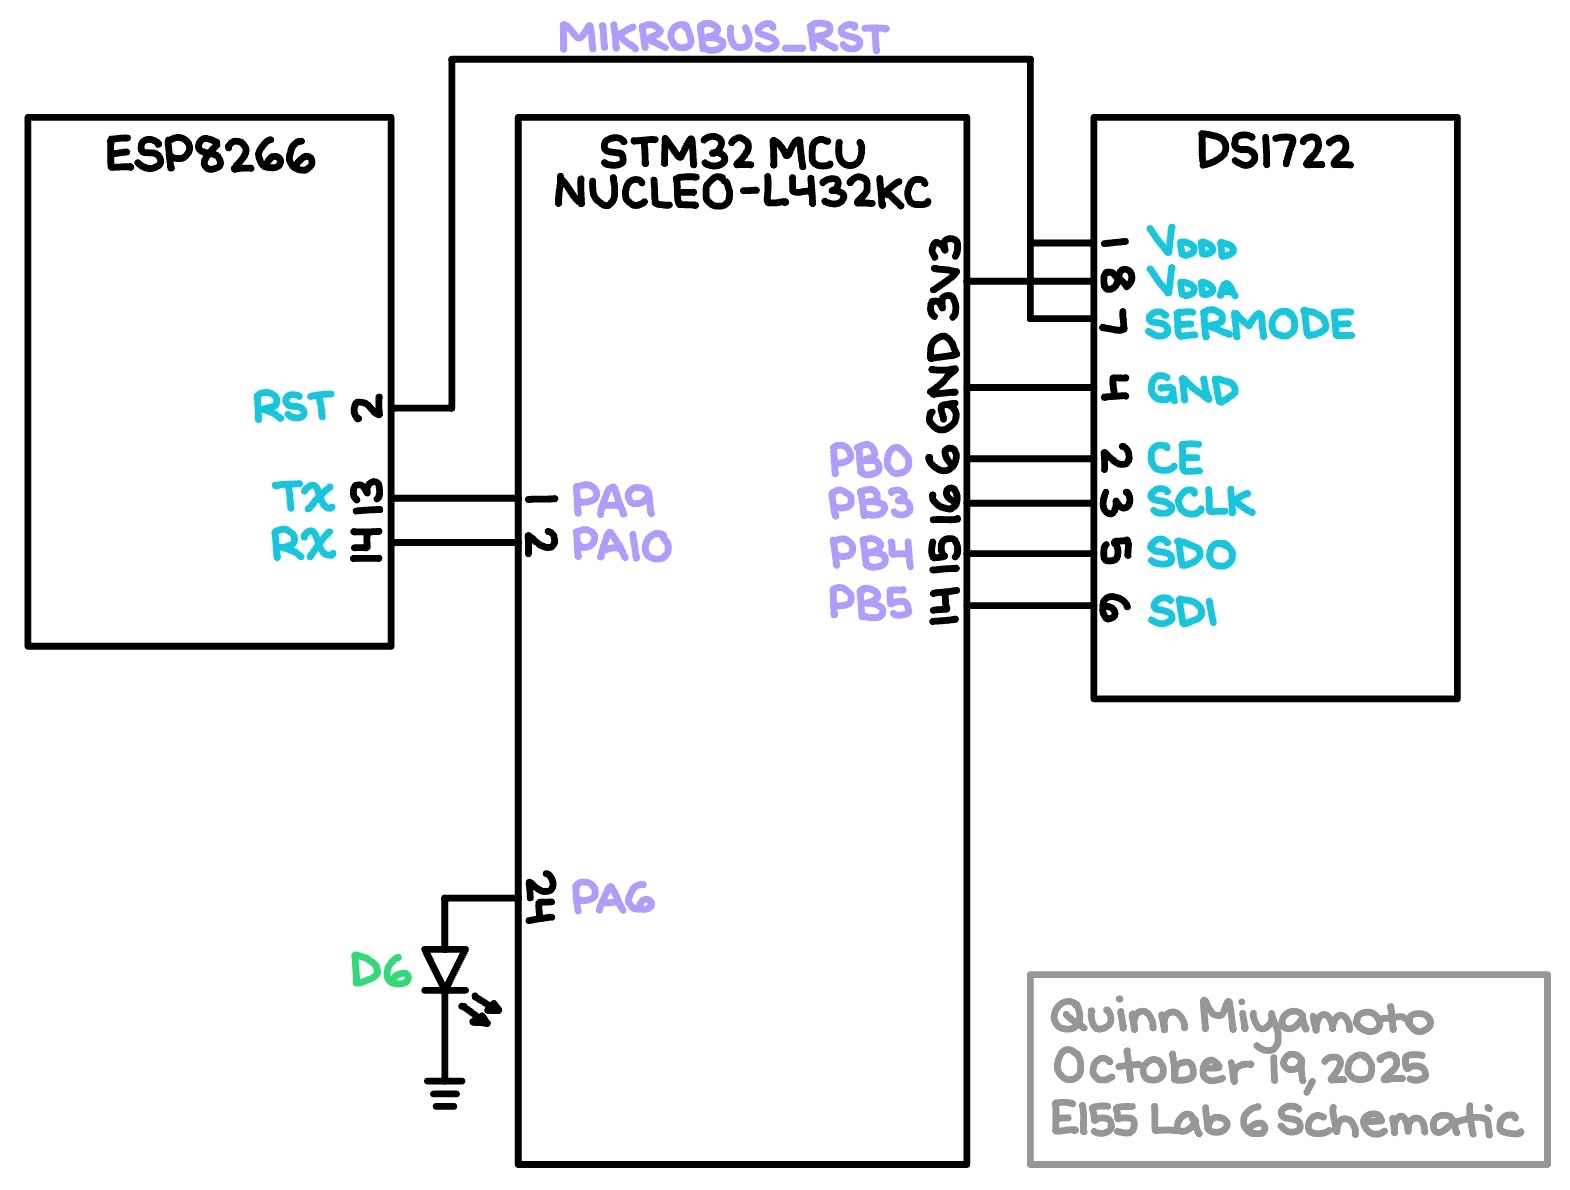 MIKROBUS_RST
ESP8266
RST 2
TX 13
RX 14
STM32 MCU
NUCLEO-L432KC
3V3
GND
1 PA9
2 PA10
PB0 6
PB3 16
PB4 15
PB5 14
24 PA6
DS1722
1 VDDD
8 VDDA
7 SERMODE
4 GND
2 CE
3 SCLK
5 SDO
6 SDI
D6
Quinn Miyamoto
October 19, 2025
E155 Lab 6 Schematic